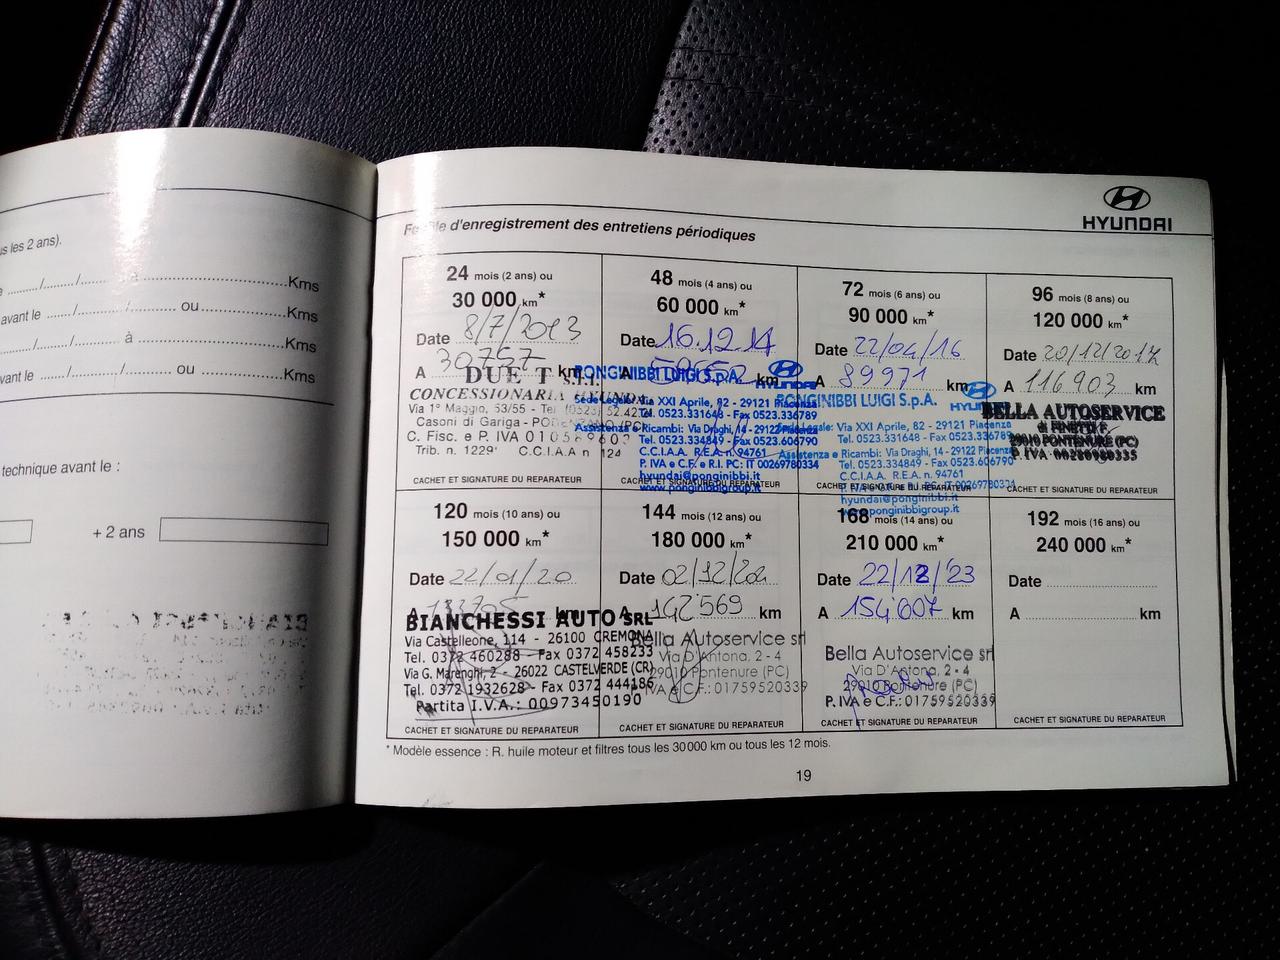 HYUNDAI
Feuille d'enregistrement des entretiens périodiques
us les 2 ans).
....../....../...... à ..................Kms
avant le ....../....../...... ou ..................Kms
....../....../...... à ..................Kms
vant le ....../....../...... ou ..................Kms
technique avant le :
+ 2 ans
24 mois (2 ans) ou
30 000 km*
Date 8/7/2013
A 30757 km
DUE T S.r.l.
CONCESSIONARIA HYUNDAI
Via 1° Maggio, 53/55 - Tel (0523) 52.42
Casoni di Gariga - PODENZANO (PC)
C. Fisc. e P. IVA 0 1 0 5 8 9 6 0 3
Trib. n. 1229 C.C.I.A.A n 124
CACHET ET SIGNATURE DU REPARATEUR
48 mois (4 ans) ou
60 000 km*
Date 16.12.14
A km
PONGINIBBI LUIGI S.p.A. HYUNDAI
Sede Legale: Via XXI Aprile, 82 - 29121 Piacenza
Tel. 0523.331648 - Fax 0523.336789
Assistenza e Ricambi: Via Draghi, 14 - 29122 Piacenza
Tel. 0523.334849 - Fax 0523.606790
C.C.I.A.A. R.E.A. n. 94761
P. IVA e C.F. e R.I. PC: IT 00269780334
hyundai@ponginibbi.it
www.ponginibbigroup.it
CACHET ET SIGNATURE DU REPARATEUR
72 mois (6 ans) ou
90 000 km*
Date 22/04/16
A 89971 km
PONGINIBBI LUIGI S.p.A. HYUNDAI
Sede Legale: Via XXI Aprile, 82 - 29121 Piacenza
Tel. 0523.331648 - Fax 0523.336789
Assistenza e Ricambi: Via Draghi, 14 - 29122 Piacenza
Tel. 0523.334849 - Fax 0523.606790
C.C.I.A.A. R.E.A. n. 94761
P. IVA e C.F. e R.I. PC: IT 00269780334
hyundai@ponginibbi.it
www.ponginibbigroup.it
CACHET ET SIGNATURE DU REPARATEUR
96 mois (8 ans) ou
120 000 km*
Date 20/12/2017
A 116903 km
BELLA AUTOSERVICE
di FINETTI F.
29010 PONTENURE (PC)
P. IVA 00280980335
CACHET ET SIGNATURE DU REPARATEUR
120 mois (10 ans) ou
150 000 km*
Date 22/01/20
A 133705 km
BIANCHESSI AUTO SRL
Via Castelleone, 114 - 26100 CREMONA
Tel. 0372 460288 - Fax 0372 458233
Via G. Marenghi, 2 - 26022 CASTELVERDE (CR)
Tel. 0372 1932628 - Fax 0372 444186
Partita I.V.A.: 00973450190
CACHET ET SIGNATURE DU REPARATEUR
144 mois (12 ans) ou
180 000 km*
Date 02/12/202
A 142569 km
Bella Autoservice srl
Via D'Antona, 2 - 4
29010 Pontenure (PC)
P. IVA e C.F.: 01759520339
CACHET ET SIGNATURE DU REPARATEUR
168 mois (14 ans) ou
210 000 km*
Date 22/12/23
A 154007 km
Bella Autoservice srl
Via D'Antona, 2 - 4
29010 Pontenure (PC)
P. IVA e C.F.: 01759520339
CACHET ET SIGNATURE DU REPARATEUR
192 mois (16 ans) ou
240 000 km*
Date
A km
CACHET ET SIGNATURE DU REPARATEUR
* Modèle essence : R. huile moteur et filtres tous les 30 000 km ou tous les 12 mois.
19